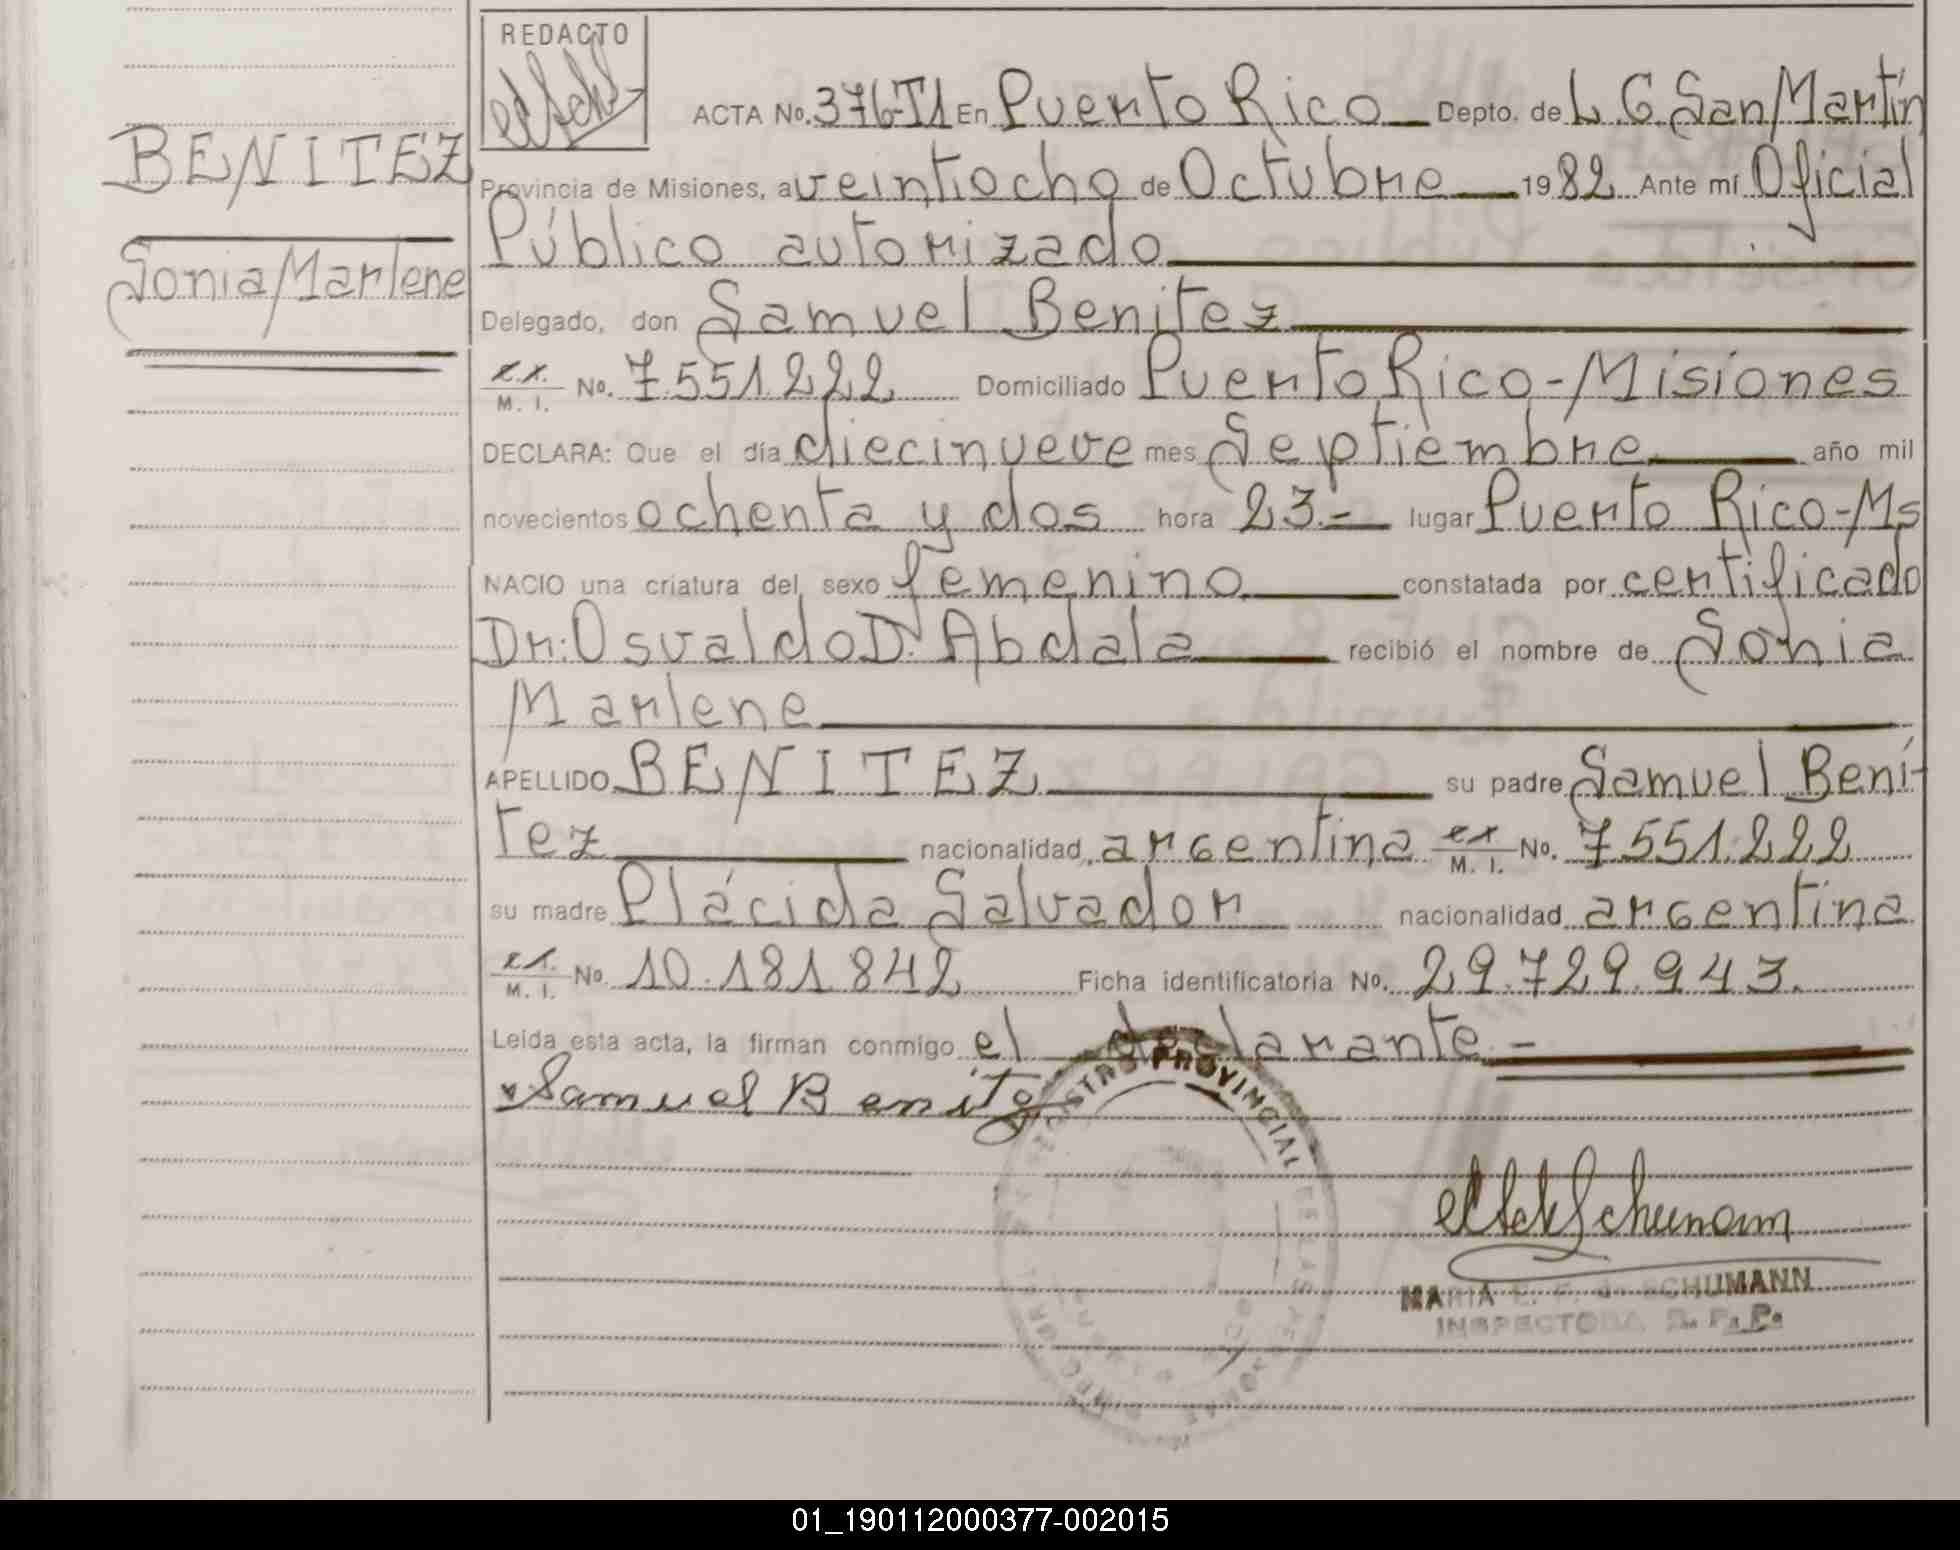 REDACTO
ACTA No. 376-T1 En Puerto Rico Depto. de L. G. San Martín
BENITEZ
Provincia de Misiones, a veintiocho de Octubre 1982 Ante mí Oficial
Público autorizado
Sonia Marlene
Delegado, don Samuel Benitez
M. I. No. 7.551.222 Domiciliado Puerto Rico-Misiones
DECLARA: Que el día diecinueve mes Septiembre año mil
novecientos ochenta y dos hora 23.- lugar Puerto Rico-Ms
NACIO una criatura del sexo femenino constatada por certificado
Dr: Osvaldo D. Abdala recibió el nombre de Sonia
Marlene
APELLIDO BENITEZ su padre Samuel Beni-
tez nacionalidad argentina M. I. No. 7.551.222
su madre Plácida Salvador nacionalidad argentina
M. I. No. 10.181.842 Ficha identificatoria No. 29.729.943.
Leida esta acta, la firman conmigo el declarante.-
Samuel Benitez
REGISTRO PROVINCIAL DE LAS PERSONAS
Schumann
MARIA E. F. de SCHUMANN
INSPECTORA R. P. P.
01_190112000377-002015